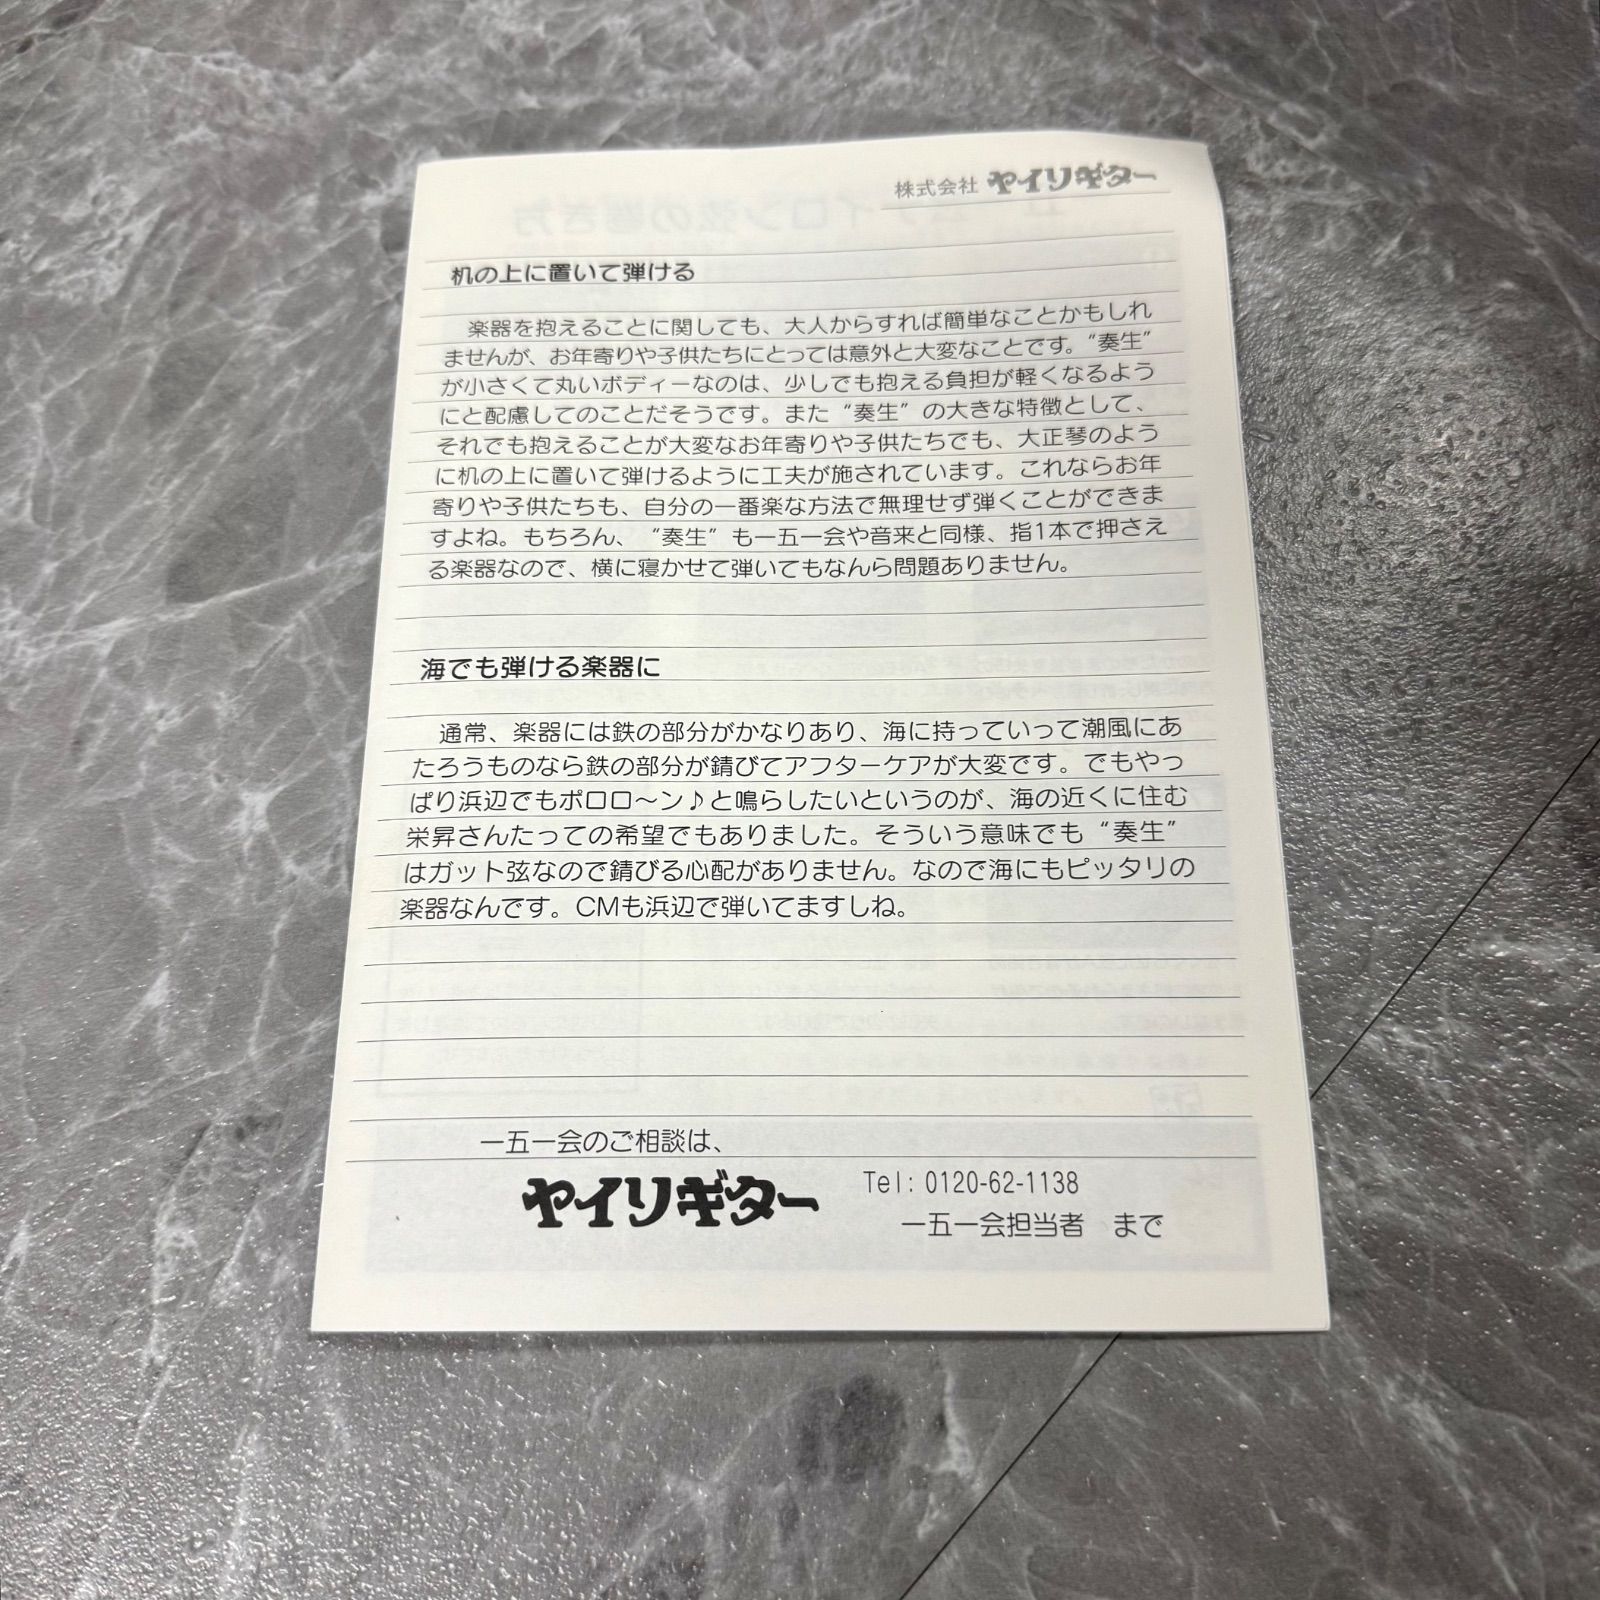 株式会社 ヤイリギター
机の上に置いて弾ける
楽器を抱えることに関しても、大人からすれば簡単なことかもしれ
ませんが、お年寄りや子供たちにとっては意外と大変なことです。“奏生”
が小さくて丸いボディーなのは、少しでも抱える負担が軽くなるよう
にと配慮してのことだそうです。また“奏生”の大きな特徴として、
それでも抱えることが大変なお年寄りや子供たちでも、大正琴のよう
に机の上に置いて弾けるように工夫が施されています。これならお年
寄りや子供たちも、自分の一番楽な方法で無理せず弾くことができま
すよね。もちろん、“奏生”も一五一会や音来と同様、指1本で押さえ
る楽器なので、横に寝かせて弾いてもなんら問題ありません。
海でも弾ける楽器に
通常、楽器には鉄の部分がかなりあり、海に持っていって潮風にあ
たろうものなら鉄の部分が錆びてアフターケアが大変です。でもやっ
ぱり浜辺でもポロロ〜ン♪と鳴らしたいというのが、海の近くに住む
栄昇さんたっての希望でもありました。そういう意味でも“奏生”
はガット弦なので錆びる心配がありません。なので海にもピッタリの
楽器なんです。CMも浜辺で弾いてますしね。
一五一会のご相談は、
ヤイリギター Tel: 0120-62-1138
一五一会担当者 まで